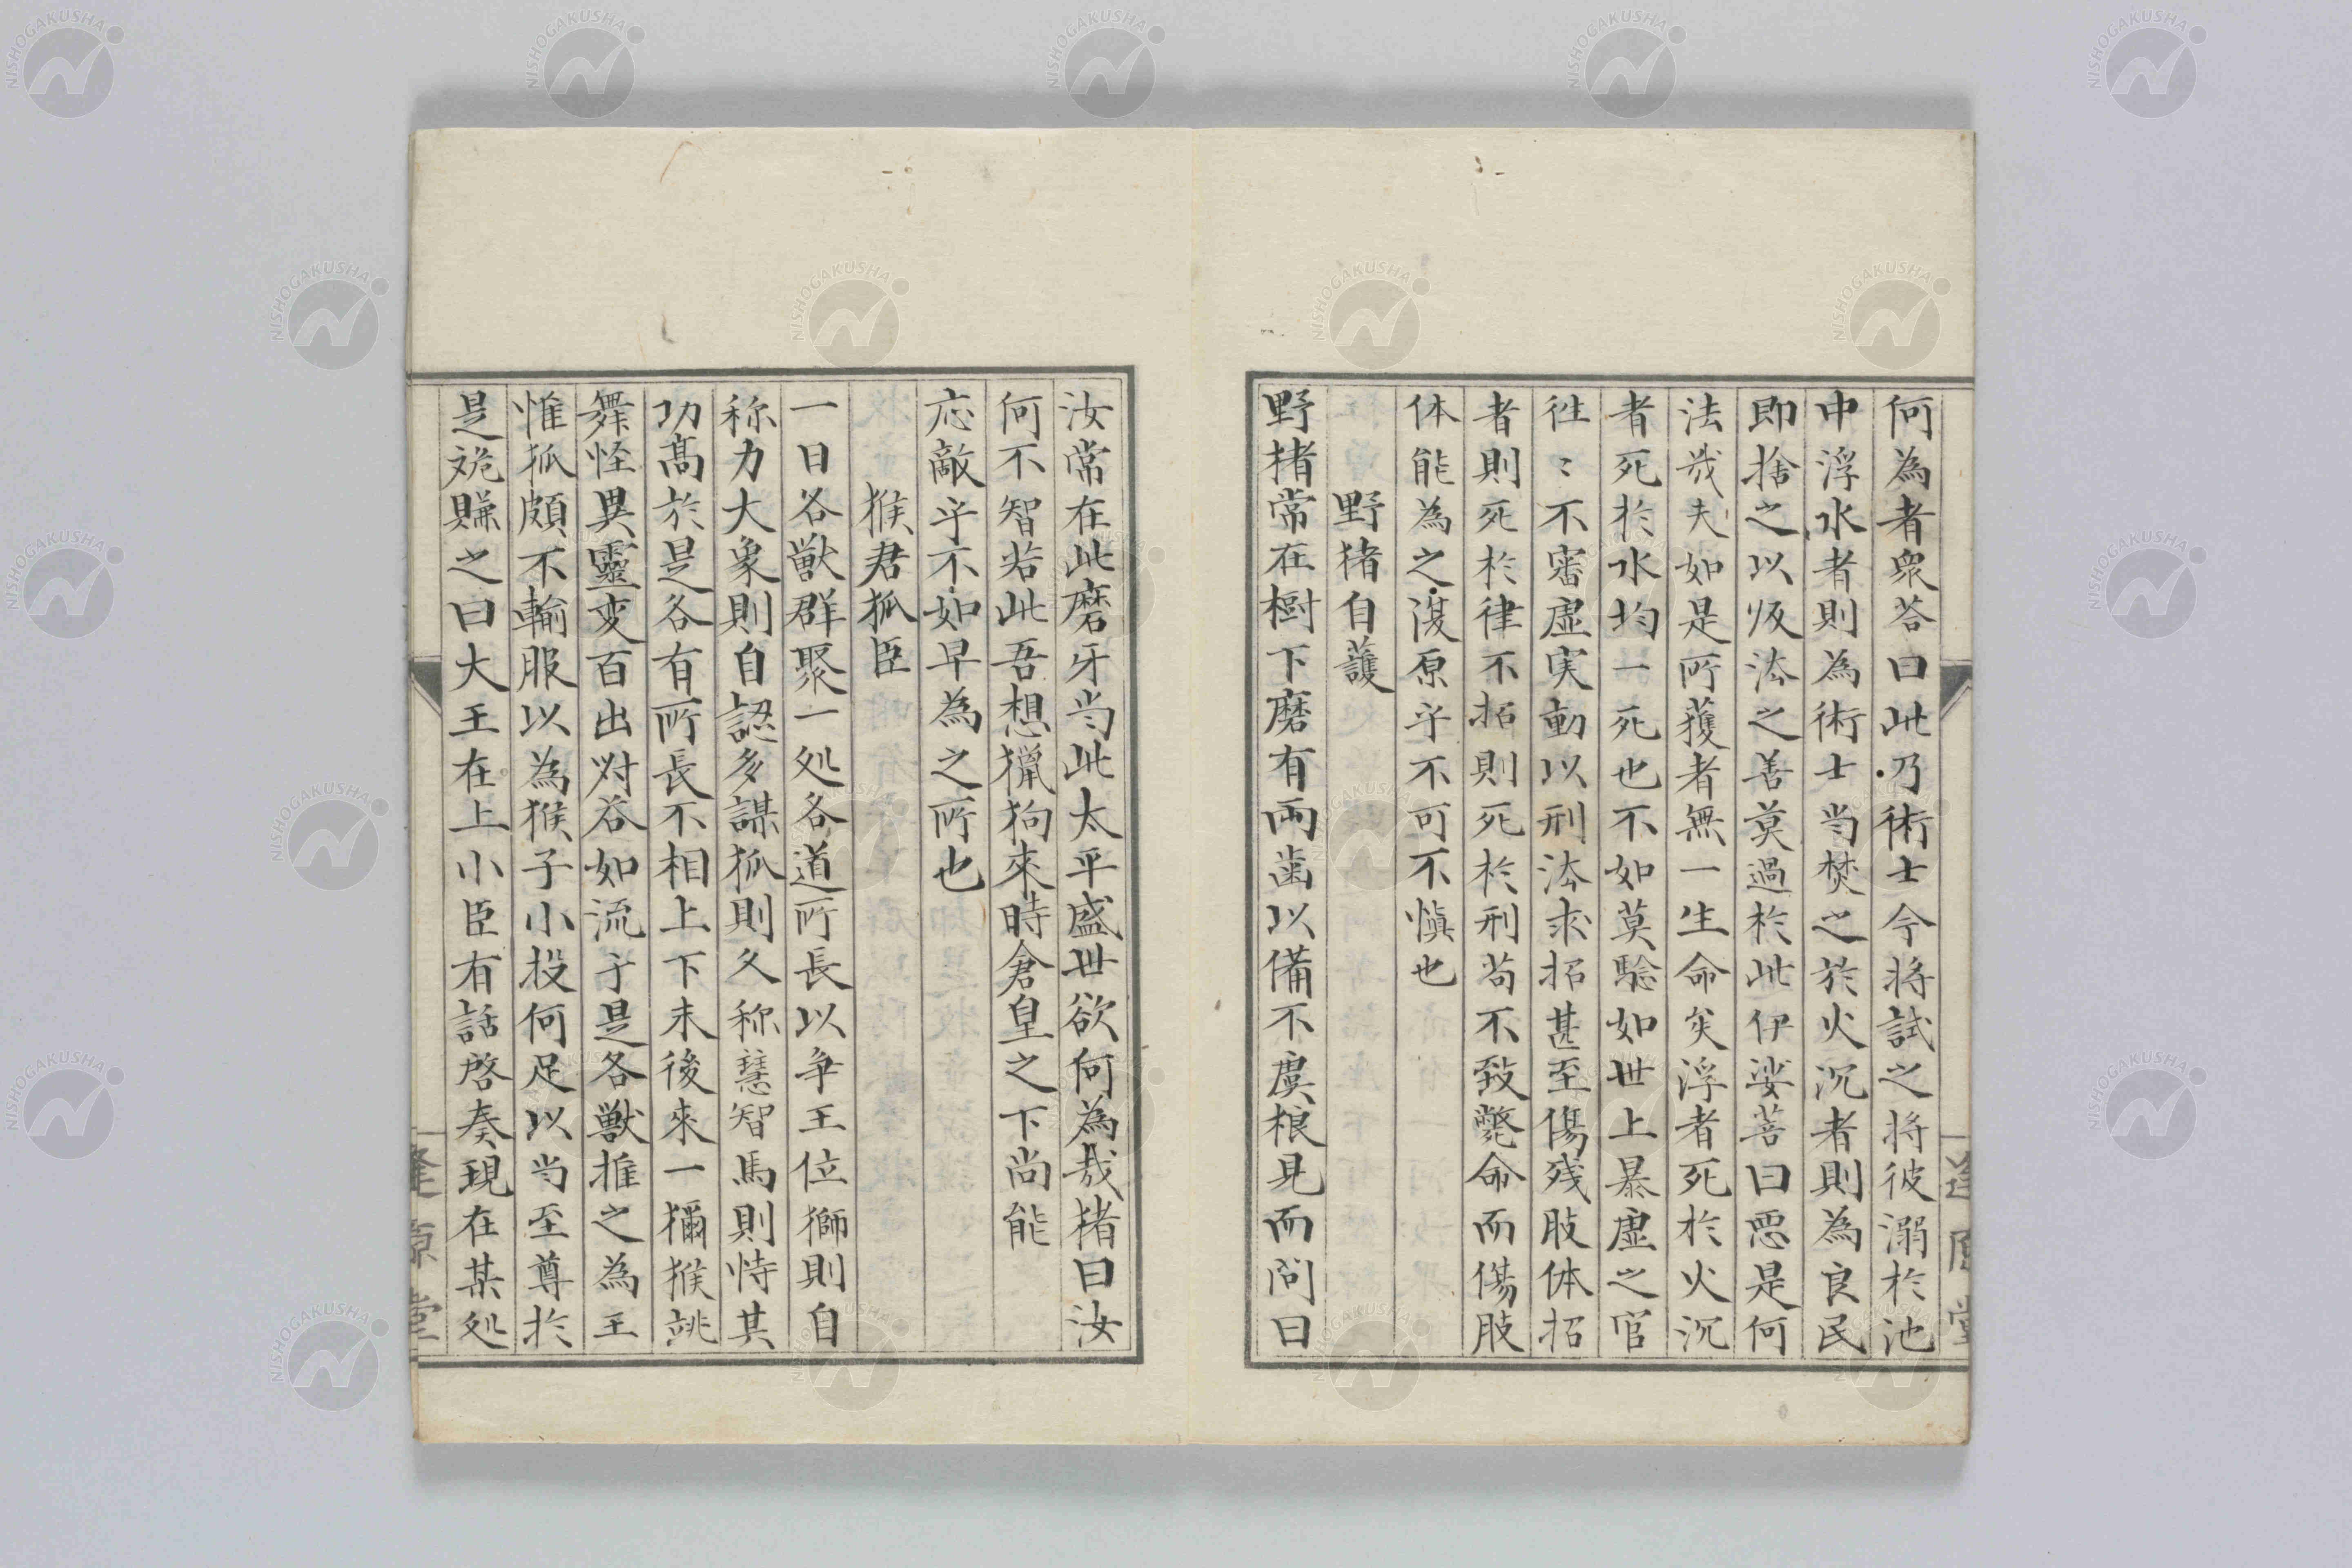 何為者衆荅曰此乃術士今將試之將彼溺於池
中浮水者則為術士当焚之於火沉者則為良民
即捨之以仮㳒之善莫過於此伊娑菩曰悪是何
法㢤夫如是所獲者無一生命矣浮者死於火沉
者死於水均一死也不如莫驗如世上暴虛之官
徃〻不審虛実動以刑㳒求招甚至傷残肢体招
者則死於律不招則死於刑苟不致斃命而傷肢
体能為之復原乎不可不慎也
野猪自護
野猪常在樹下磨有兩歯以備不虞粮見而问曰
汝常在此磨牙当此太平盛世欲何為㢤猪曰汝
何不智若此吾想獵狗來時倉皇之下尚能
応敵乎不如早為之所也
猴君狐臣
一日各獸群聚一処各道所長以争王位獅則自
称力大象則自認多謀狐則久称慧智馬則恃其
功髙於是各有所長不相上下末後來一獼猴跳
舞怪異靈变百出对荅如流于是各獸推之為王
惟狐頗不輸服以為猴子小技何足以当至尊於
是詭賺之曰大王在上小臣有話啓奏現在某処
逢原堂
逢原堂
NISHOGAKUSHA